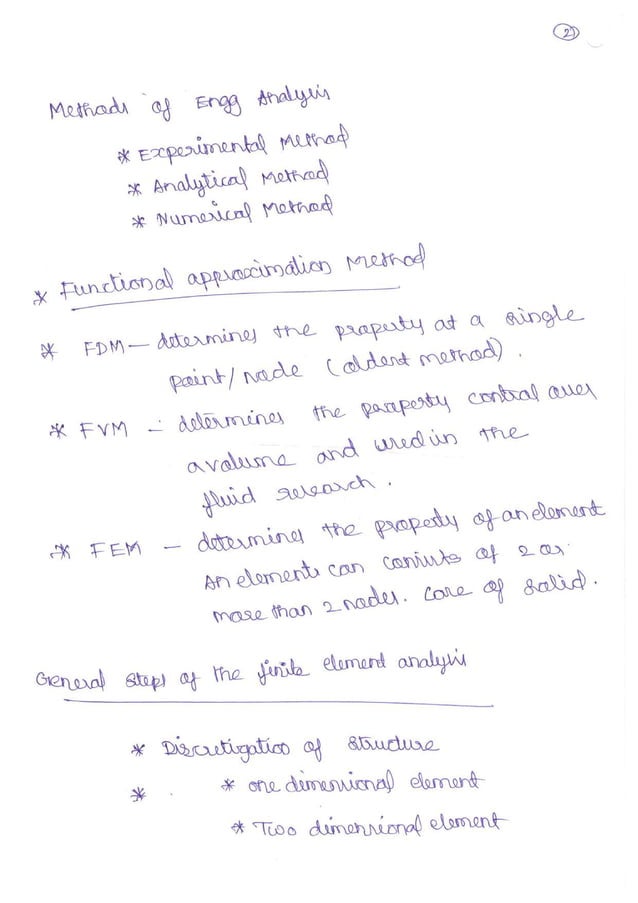 2)
Methods of Engg Analysis
* Experimental Method
* Analytical Method
* Numerical Method
* Functional approximation Method
* FDM — determines the property at a single
point/node (oldest method).
* FVM — determines the property control over
a volume and used in the
fluid research.
* FEM — determines the property of an element
An elements can consists of 2 or
more than 2 nodes. Core of solid.
General steps of the finite element analysis
* Discretization of structure
* . * one dimensional element
* Two dimensional element